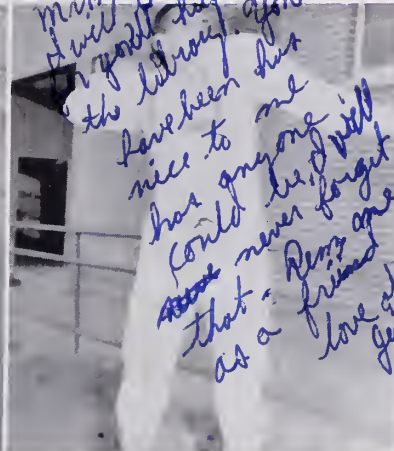 I will
the library. You
have been has
nice to me
has anyone
could be, I will
never forget
that. Rem me
as a friend
love